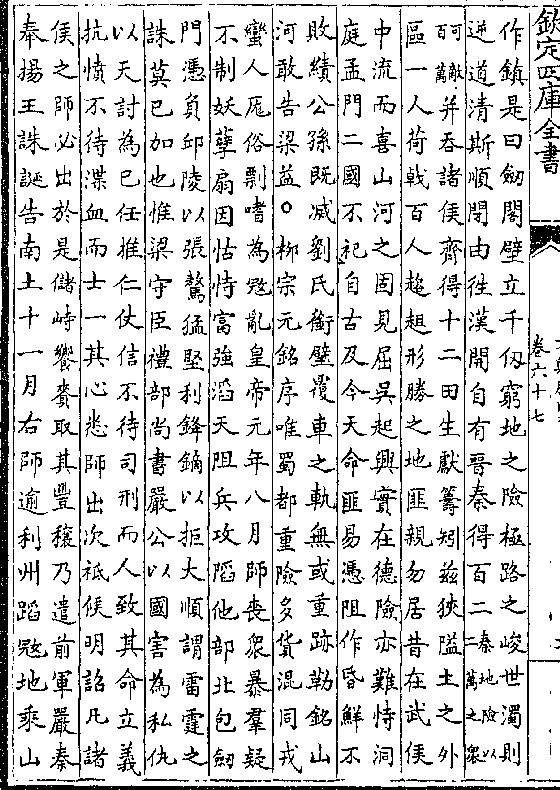 欽定四庫全書
卷六十七
作鎮是曰劒閣壁立千仭窮地之險極路之峻世濁則
逆道清斯順閉由往漢開自有晉秦得百二秦地險以二萬之衆
可敵百萬并吞諸侯齊得十二田生獻籌矧兹狹隘土之外
區一人荷戟百人趦趄形勝之地匪親勿居昔在武侯
中流而喜山河之固見屈吳起興實在德險亦難恃洞
庭孟門二國不祀自古及今天命匪易憑阻作昏鮮不
敗績公孫既滅劉氏銜璧覆車之軌無或重跡勒銘山
河敢告梁益○柳宗元銘序唯蜀都重險多貨混同戎
蠻人厖俗剽嗜為宼亂皇帝元年八月師喪衆暴羣疑
不制妖孽扇因怙恃富強滔天阻兵攻䧟他部北包劒
門憑負邱陵以張驁猛堅利鋒鏑以拒大順謂雷霆之
誅莫已加也惟梁守臣禮部尚書嚴公以國害為私仇
以天討為已任推仁仗信不待司刑而人致其命立義
抗憤不待渫血而士一其心悉師出次祗俟明詔凡諸
侯之師必出於是儲峙饗賚取其豐穰乃遣前軍嚴秦
奉揚王誅誕告南土十一月右師逾利州蹈宼地乘山